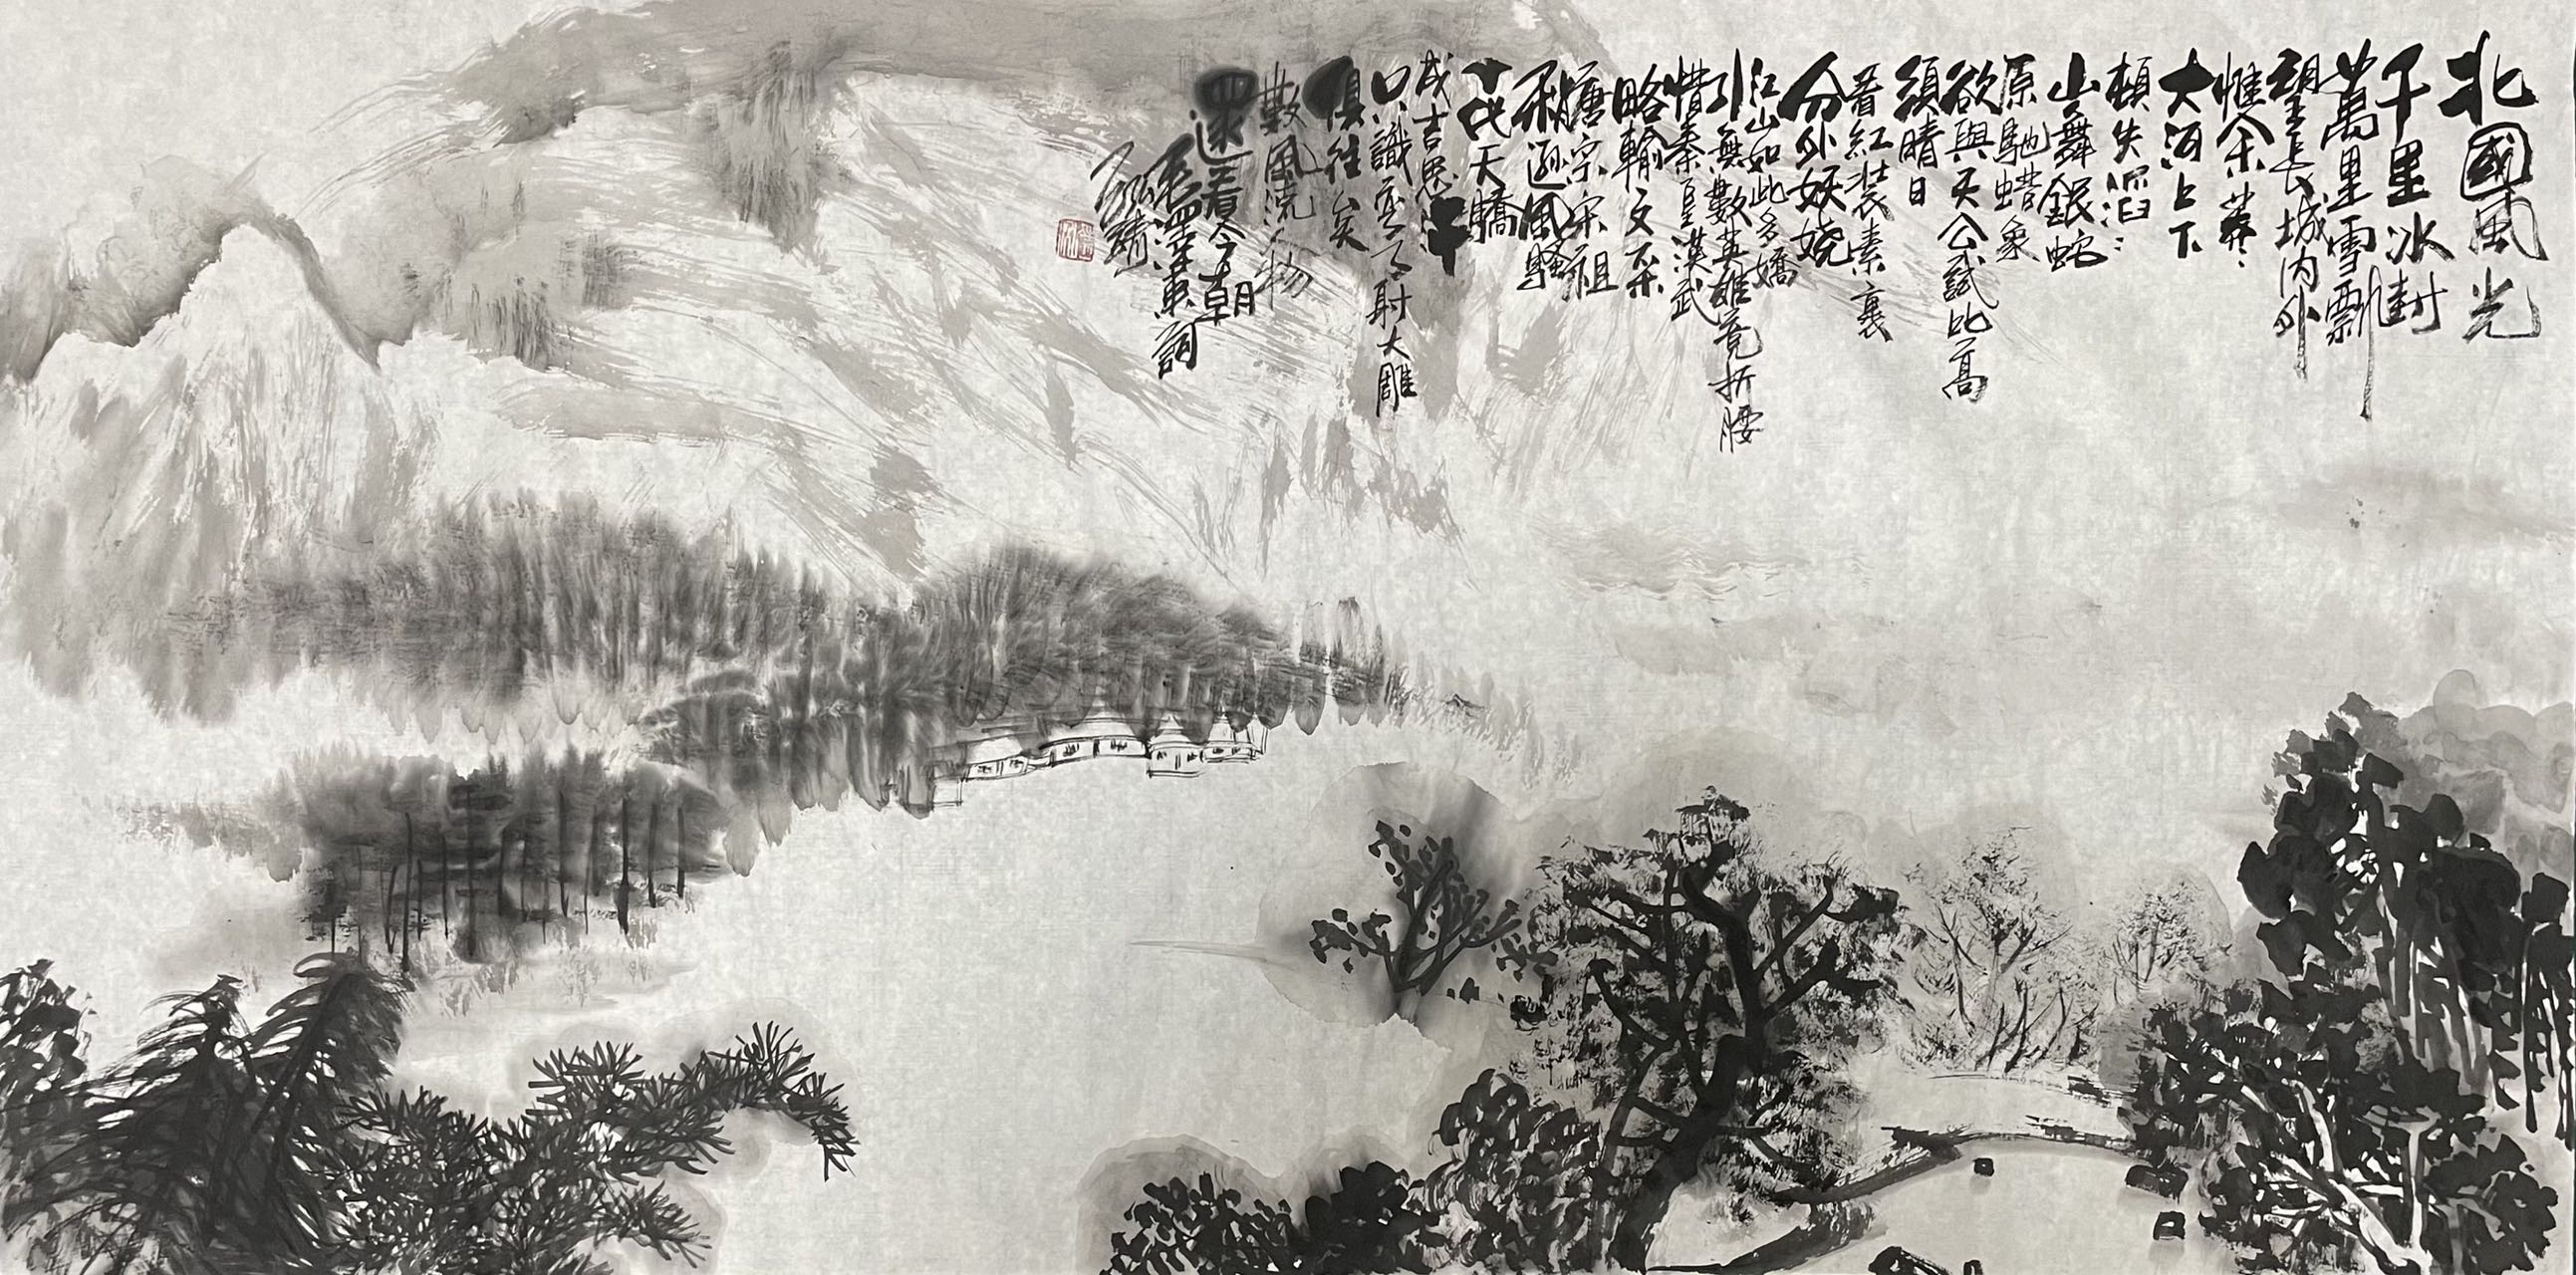 北國風光
千里冰封
萬里雪飄
望長城內外
惟余莽：
大河上下
頓失滔滔：
山舞銀蛇
原馳蜡象
欲與天公試比高
須晴日
看紅裝素裹
分外妖娆
江山如此多嬌
引無數英雄竟折腰
惜秦皇漢武
略輸文采
唐宗宋祖
稍遜風騷
一代天驕
成吉思汗
只識彎弓射大雕
俱往矣
數風流人物
還看今朝
毛澤東詞